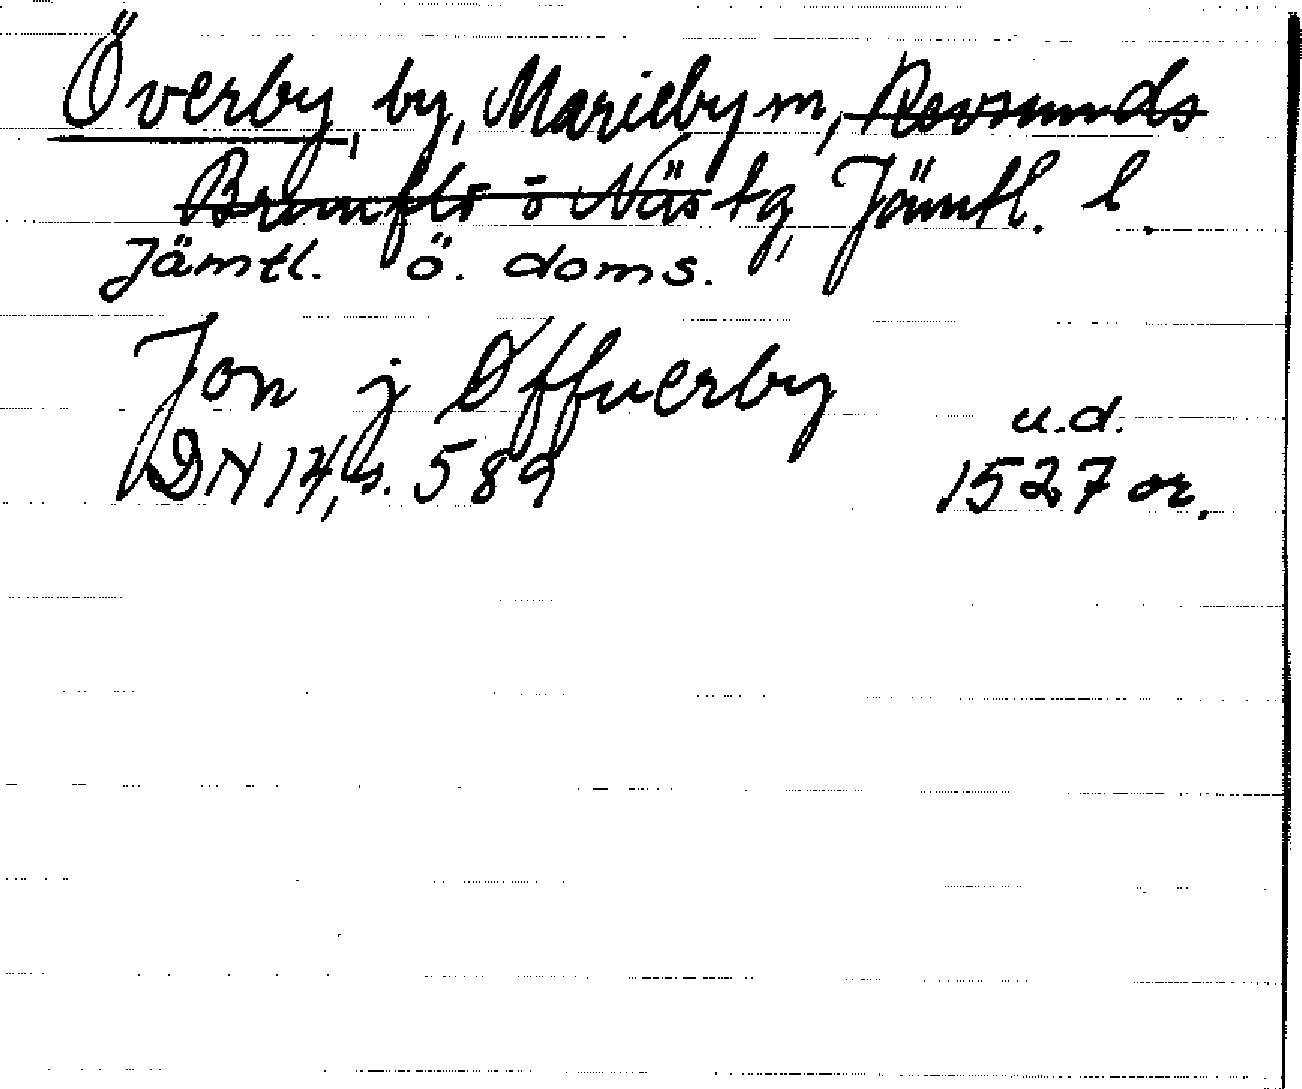 Överby, by, Marieby sn, Revsunds
Brunflo o Näs tg, Jämtl. l.
Jämtl. ö. doms.
Jon j Øffuerby
u.d.
DN 14, s. 589 1527 or.